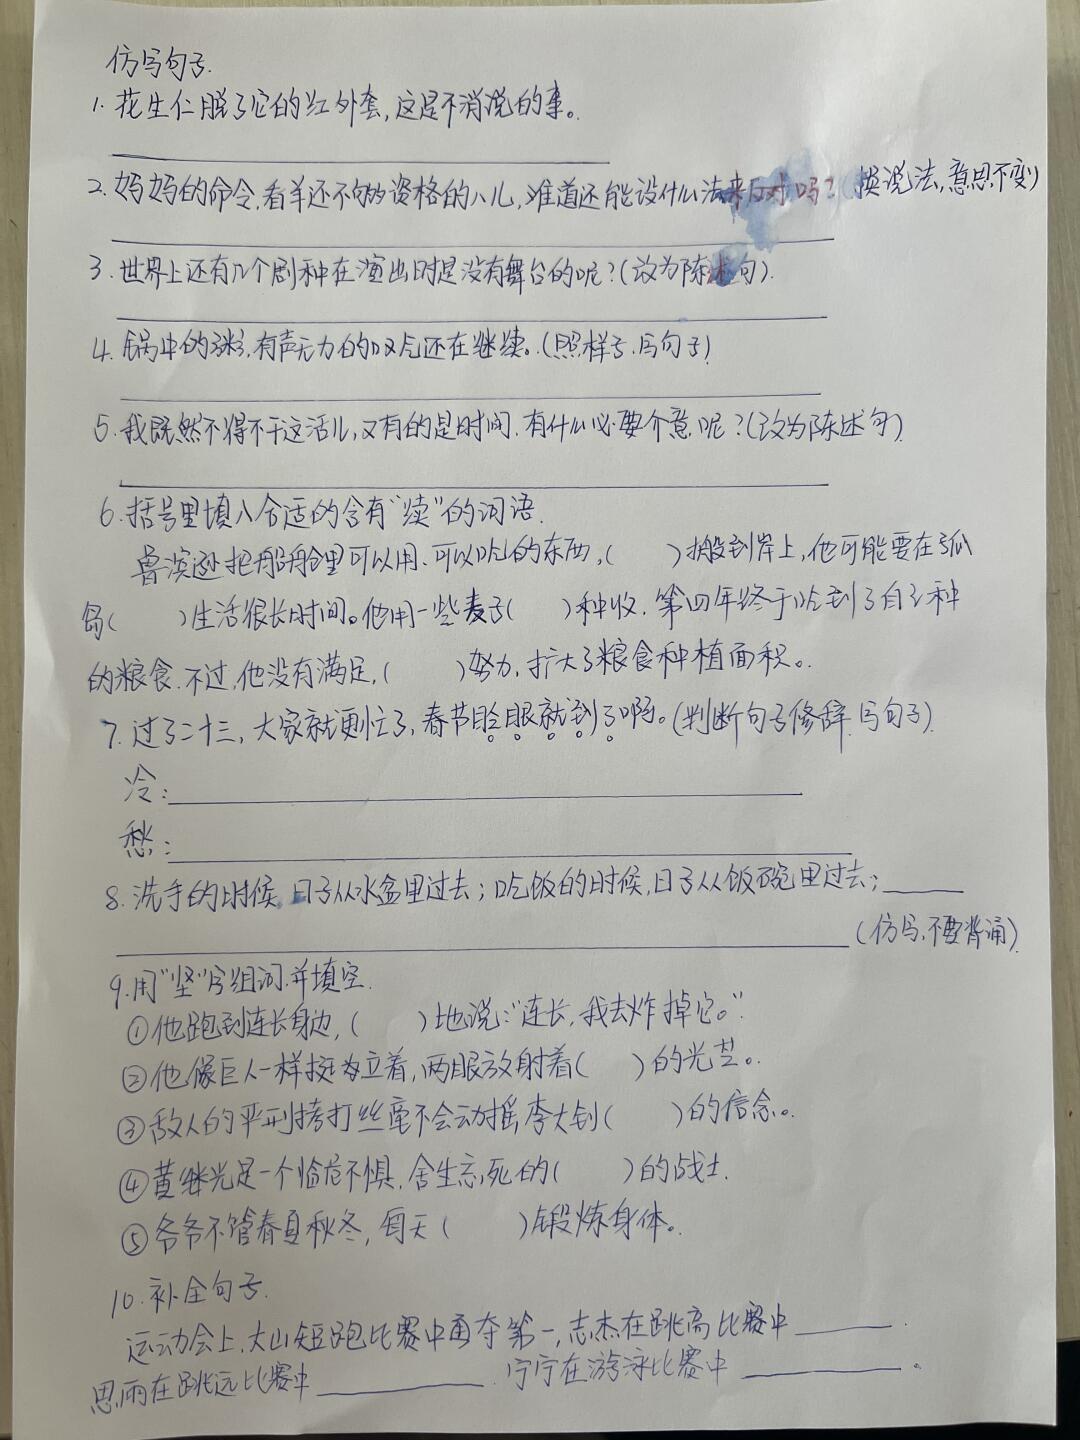 仿写句子.
1. 花生仁脱了它的红外套,这是不消说的事。
2. 妈妈的命令,看羊还不够资格的人儿,难道还能设什么法来反对吗?(换说法,意思不变)
3. 世界上还有几个剧种在演出时是没有舞台的呢?(改为陈述句).
4. 锅中的粥,有声无力的叹气还在继续。(照样子.写句子)
5. 我既然不得不干这活儿,又有的是时间.有什么必要介意呢?(改为陈述句).
6. 括号里填入合适的含有“续”的词语.
鲁滨逊把船舱里可以用.可以吃的东西,( )搬到岸上,他可能要在孤
岛( )生活很长时间。他用一些麦子( )种收.第四年终于吃到了自己种
的粮食.不过,他没有满足,( )努力,扩大了粮食种植面积。
7. 过了二十三,大家就更忙了,春节眨眼就到了啊。(判断句子修辞.写句子).
冷:
愁:
8. 洗手的时候,日子从水盆里过去;吃饭的时候,日子从饭碗里过去;
(仿写,不要背诵)
9. 用“坚”字组词.并填空.
①他跑到连长身边,( )地说:“连长,我去炸掉它。”
②他像巨人一样挺立着,两眼放射着( )的光芒。
③敌人的严刑拷打丝毫不会动摇李大钊( )的信念。
④黄继光是一个临危不惧.舍生忘死的( )的战士.
⑤爷爷不管春夏秋冬,每天( )锻炼身体。
10. 补全句子.
运动会上,大山短跑比赛中勇夺第一,志杰在跳高比赛中 .
思雨在跳远比赛中 .宁宁在游泳比赛中 。